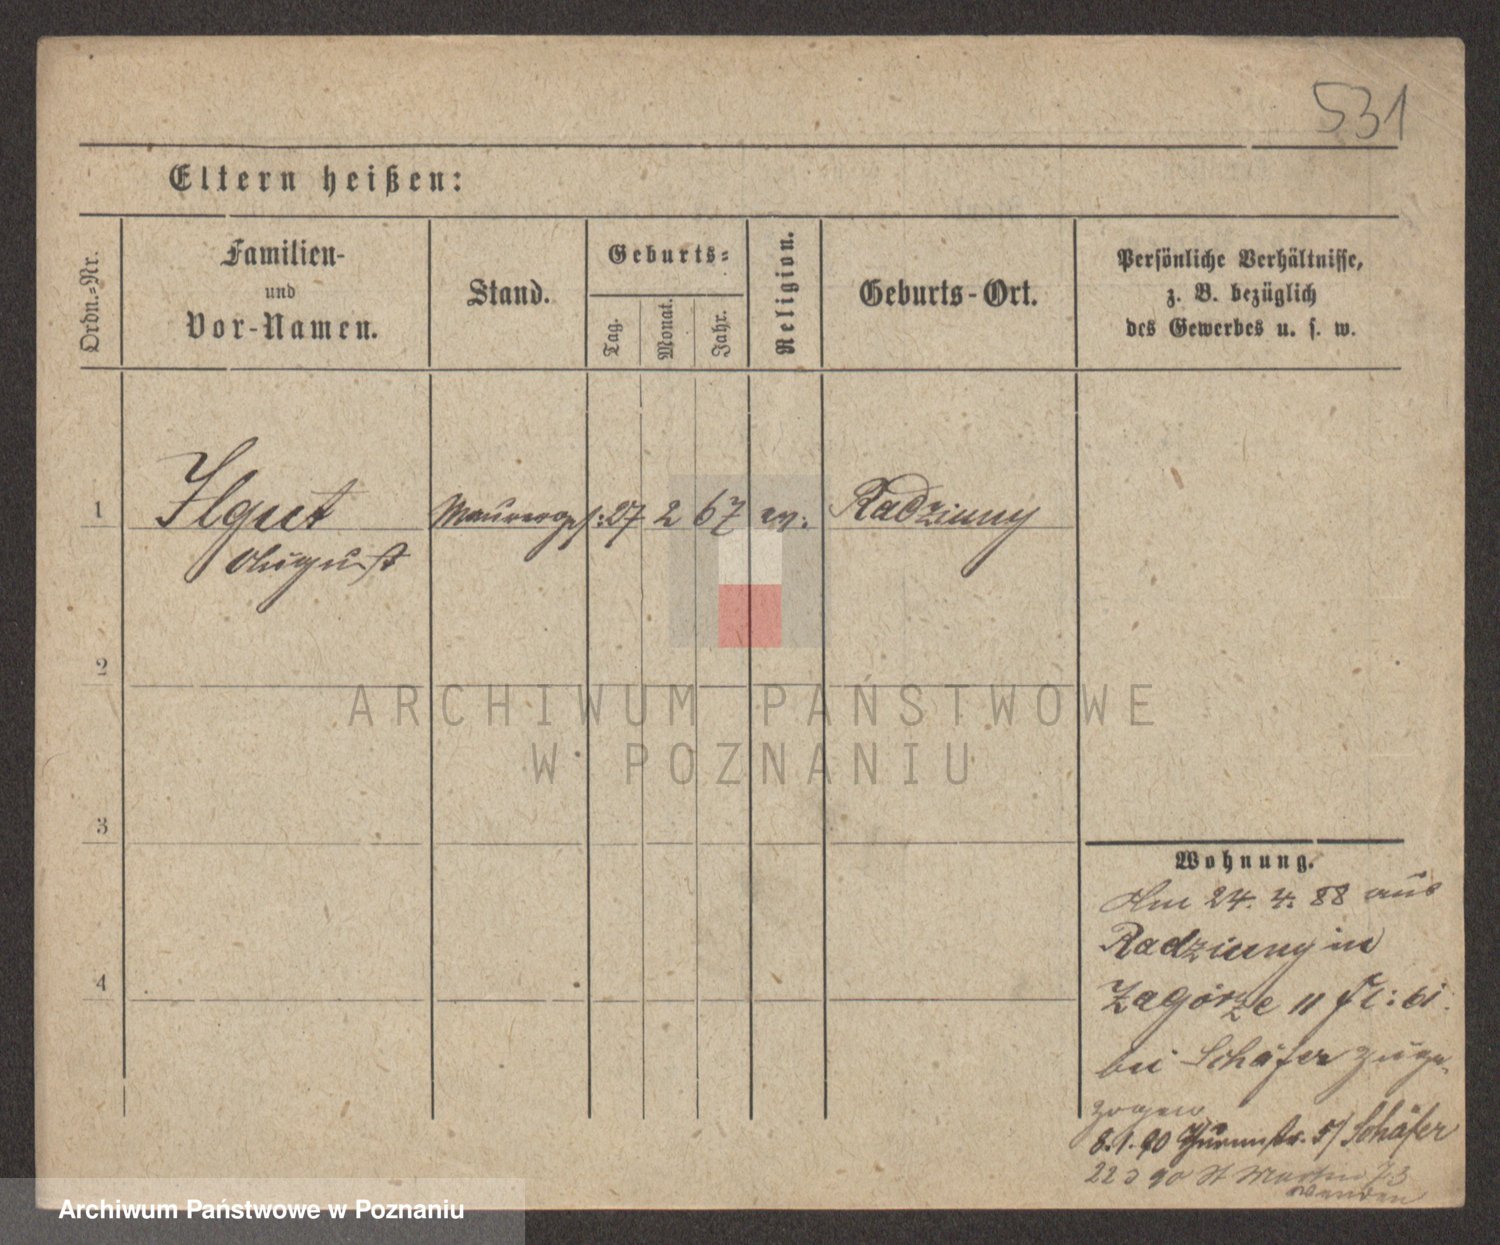 531
Eltern heißen:
Ordn.-Nr.
Familien-
und
Vor-Namen.
Stand.
Geburts-
Tag.
Monat.
Jahr.
Religion.
Geburts-Ort.
Persönliche Verhältnisse,
z. B. bezüglich
des Gewerbes u. s. w.
1 Ilgut Maurerges: 27 2 67 ev: Radziuny
August
2
3
4
ARCHIWUM PAŃSTWOWE
W POZNANIU
Wohnung.
Am 24. 4. 88 aus
Radziuny in
Zagórze 11 bei
bei Schäfer zuge-
zogen
8.1.90 Thurmstr. 5/ Schäfer
22 3 90 St Martin 73
wenden
Archiwum Państwowe w Poznaniu